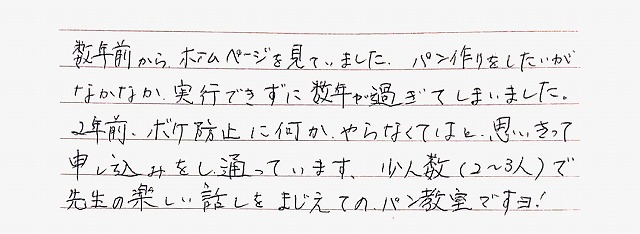 数年前から、ホームページを見ていました。パン作りをしたいが
なかなか、実行できずに数年が過ぎてしまいました。
2年前、ボケ防止に何か、やらなくてはと、思いきって
申し込みをし、通っています、少人数(2～3人)で
先生の楽しい話しをまじえての、パン教室ですヨ!